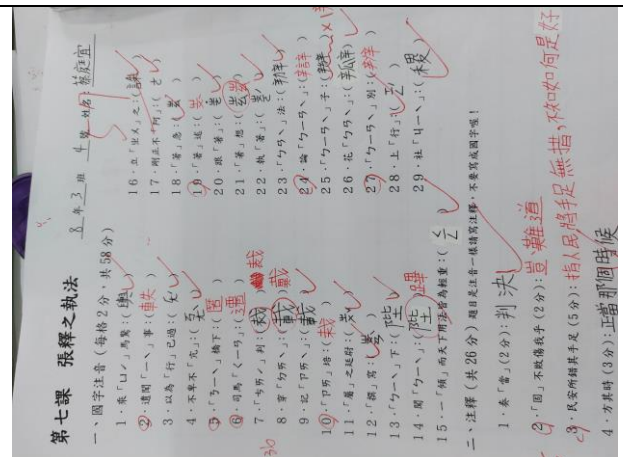 第七課 張釋之執法
8年3班 4號 姓名:蔡庭宜
一、國字注音(每格2分,共58分)
1.乘「ㄩˊ」馬驚:(輿)
2.遺聞「ㄧˋ」事:(軼)
3.以為「行」已過:
4.不卑不「亢」:
5.「ㄋㄧˋ」橋下:(匿)
6.司馬「ㄑㄧㄢ」:(遷)
7.「ㄘㄞˊ」判:(裁)
8.穿「ㄉㄞˋ」:(戴)
9.記「ㄗㄞˇ」:(載)
10.「ㄗㄞ」培:(栽)
11.「屬」之廷尉:
12.「撰」寫:
13.「ㄅㄧˋ」下:(陛)
14.開「ㄅㄧˋ」:(陛)蹕
15.一「傾」而天下用法皆為輕重:
16.立「ㄓㄨ」之:(誅)
17.剛正不「阿」:(ㄜ)
18.「著」急:
19.「著」述:
20.跟「著」:
21.「著」想:
22.執「著」:
23.「ㄅㄢˋ」法:(辦)
24.論「ㄅㄧㄢˋ」:(辯)
25.「ㄅㄧㄢˋ」子:(辮)
26.花「ㄅㄢˋ」:(瓣)
27.「ㄅㄧㄢˋ」別:(辨)
28.上「行」:
29.社「ㄐㄧˋ」:(稷)
二、注釋(共26分)題目是注音一樣請寫注釋,不要寫成國字喔!
1.奏「當」(2分):判決
2.「固」不敗傷我乎(2分):豈難道
3.民安所錯其手足(5分):指人民將手足無措,不知如何是好
4.方其時(3分):正當那個時候